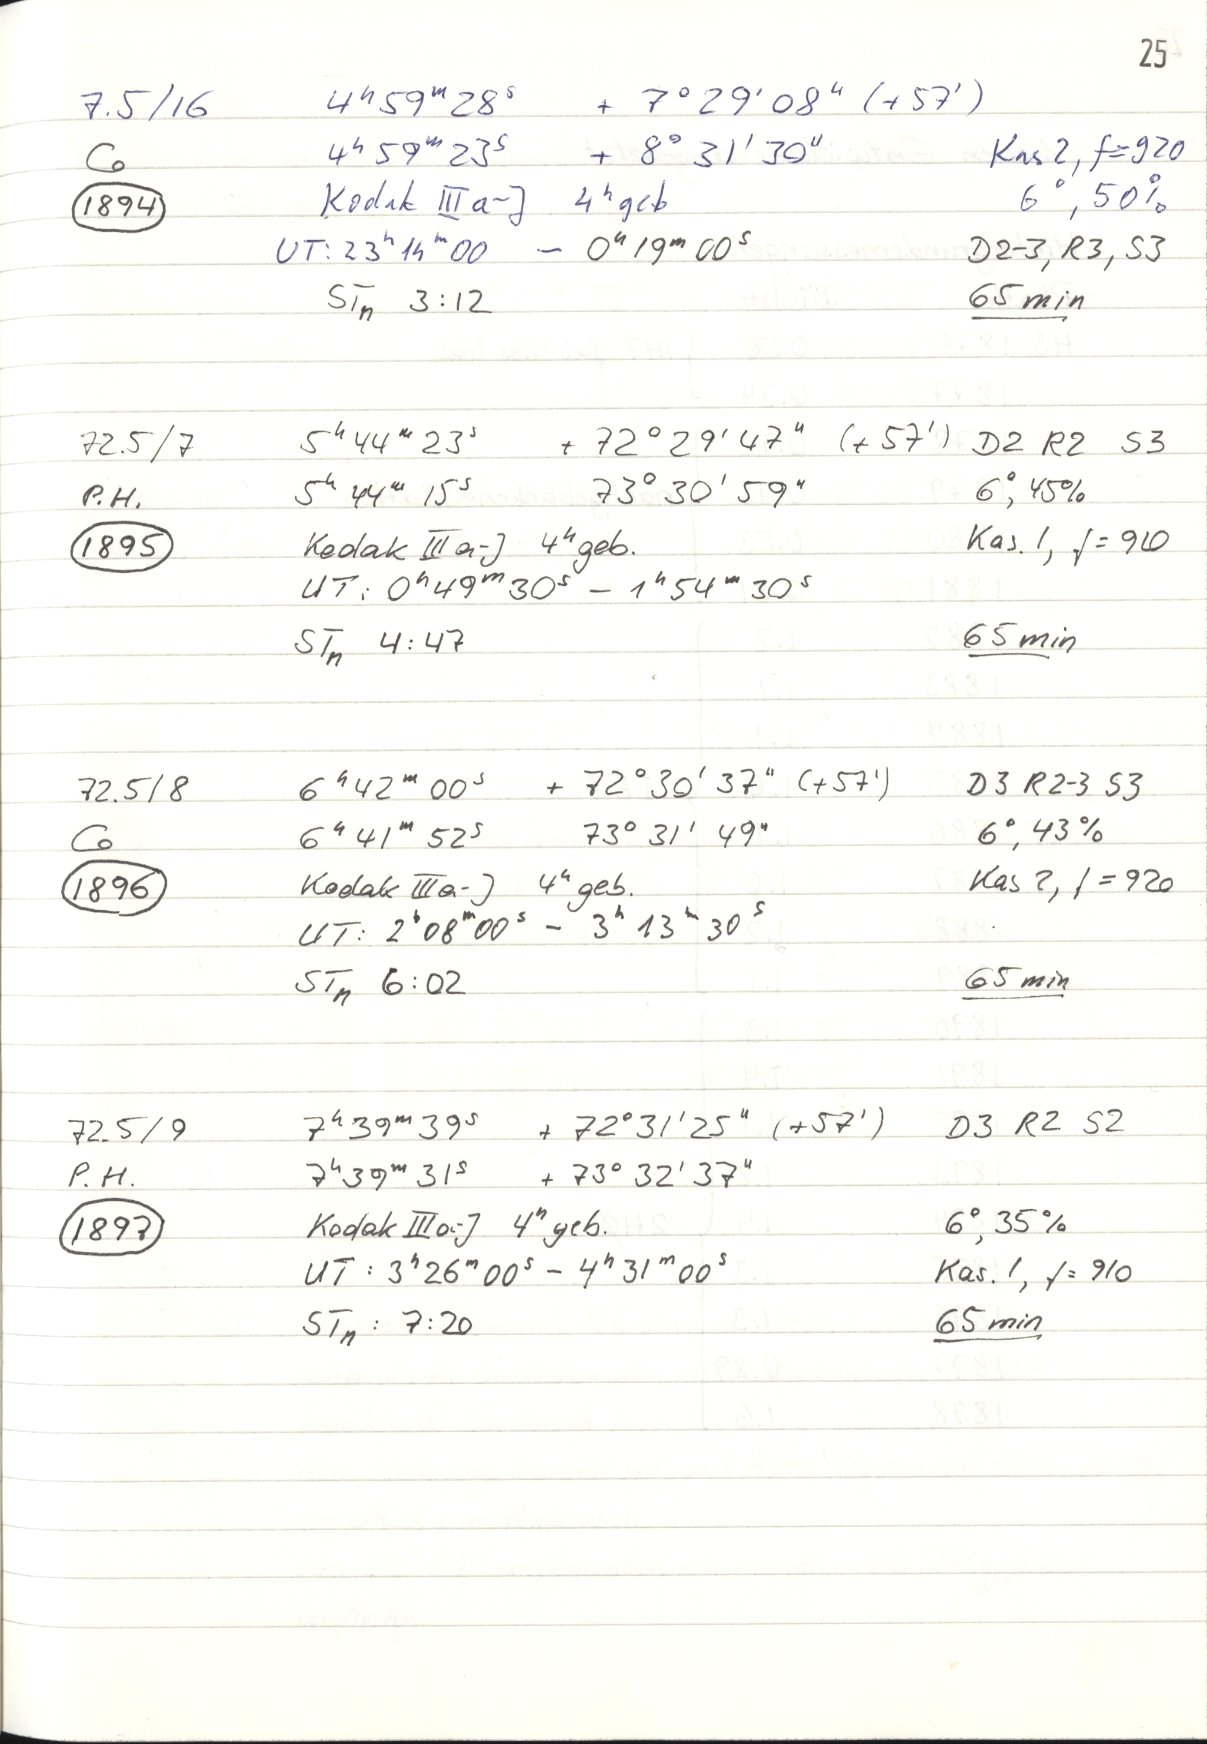 25
7.5/16 4ʰ59ᵐ28ˢ + 7°29'08" (+57')
Co 4ʰ59ᵐ23ˢ + 8°31'30" Kas 2, f=920
1894 Kodak IIIa-J 4ʰ geb 6°, 50%
UT: 23ʰ14ᵐ00 – 0ʰ19ᵐ00ˢ D2-3, R3, S3
STn 3:12 65 min
72.5/7 5ʰ44ᵐ23ˢ + 72°29'47" (+57') D2 R2 S3
P.H. 5ʰ44ᵐ15ˢ 73°30'59" 6°, 45%
1895 Kodak IIIa-J 4ʰ geb. Kas. 1, f=910
UT: 0ʰ49ᵐ30ˢ – 1ʰ54ᵐ30ˢ
STn 4:47 65 min
72.5/8 6ʰ42ᵐ00ˢ + 72°30'37" (+57') D3 R2-3 S3
Co 6ʰ41ᵐ52ˢ 73°31'49" 6°, 43%
1896 Kodak IIIa-J 4ʰ geb. Kas 2, f=920
UT: 2ʰ08ᵐ00ˢ – 3ʰ13ᵐ30ˢ
STn 6:02 65 min
72.5/9 7ʰ39ᵐ39ˢ + 72°31'25" (+57') D3 R2 S2
P.H. 7ʰ39ᵐ31ˢ + 73°32'37"
1897 Kodak IIIa-J 4ʰ geb. 6°, 35%
UT: 3ʰ26ᵐ00ˢ – 4ʰ31ᵐ00ˢ Kas. 1, f=910
STn: 7:20 65 min